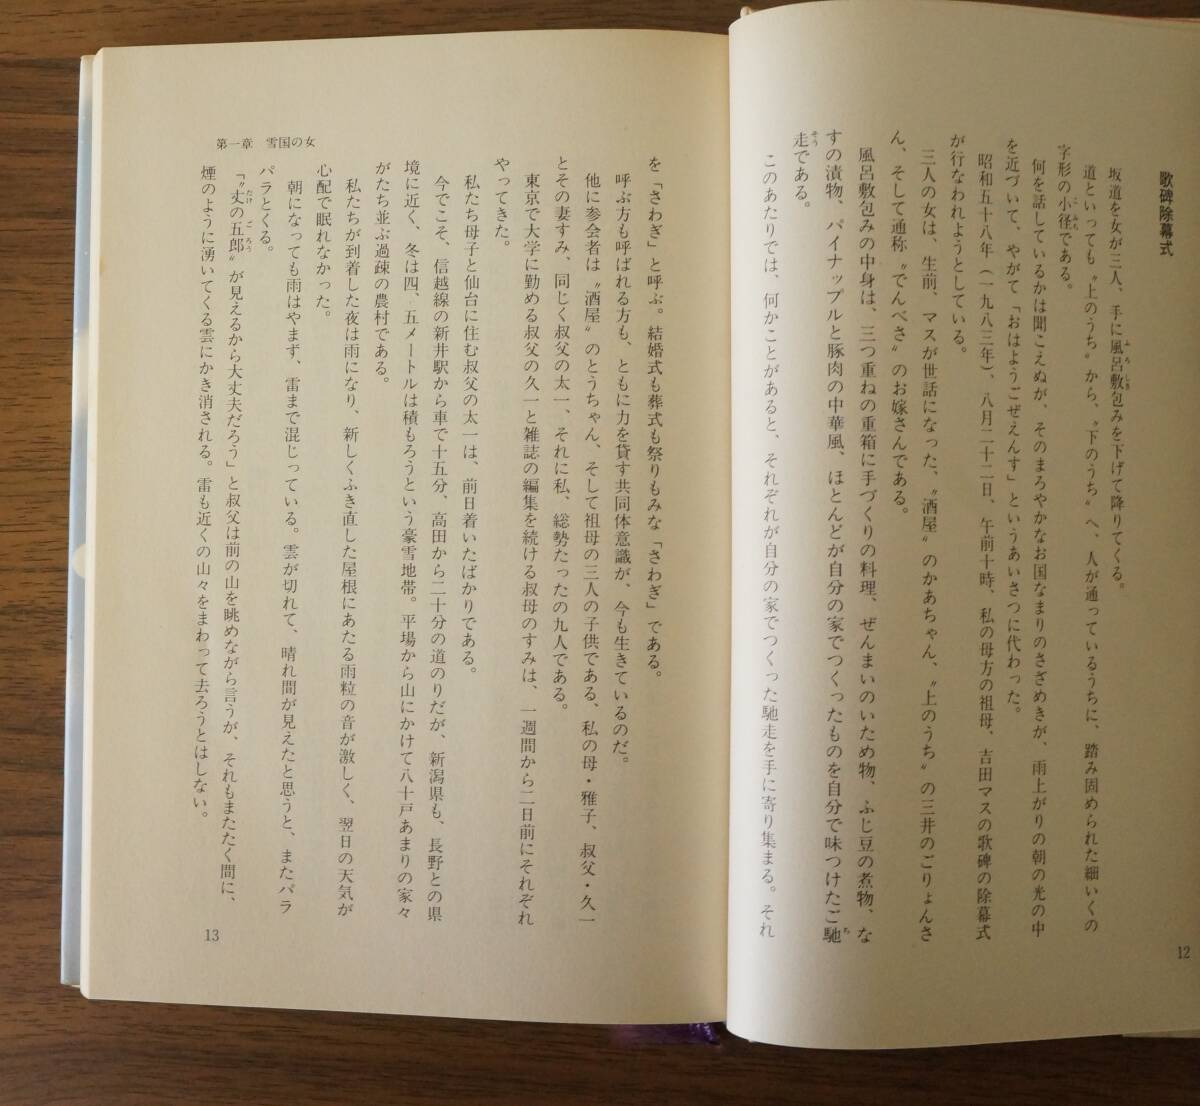 歌碑除幕式
坂道を女が三人、手に風呂敷包みを下げて降りてくる。
道といっても〝上のうち〟から、〝下のうち〟へ、人が通っているうちに、踏み固められた細いくの
字形の小径である。
何を話しているかは聞こえぬが、そのまろやかなお国なまりのさざめきが、雨上がりの朝の光の中
を近づいて、やがて「おはようごぜえんす」というあいさつに代わった。
昭和五十八年（一九八三年）、八月二十二日、午前十時、私の母方の祖母、吉田マスの歌碑の除幕式
が行なわれようとしている。
三人の女は、生前、マスが世話になった、〝酒屋〟のかあちゃん、〝上のうち〟の三井のごりょんさ
ん、そして通称〝でんべさ〟のお嫁さんである。
風呂敷包みの中身は、三つ重ねの重箱に手づくりの料理、ぜんまいのいため物、ふじ豆の煮物、な
すの漬物、パイナップルと豚肉の中華風、ほとんどが自分の家でつくったものを自分で味つけたご馳
走である。
このあたりでは、何かことがあると、それぞれが自分の家でつくった馳走を手に寄り集まる。それ
12
を「さわぎ」と呼ぶ。結婚式も葬式も祭りもみな「さわぎ」である。
呼ぶ方も呼ばれる方も、ともに力を貸す共同体意識が、今も生きているのだ。
他に参会者は〝酒屋〟のとうちゃん、そして祖母の三人の子供である、私の母・雅子、叔父・久一
とその妻すみ、同じく叔父の太一、それに私、総勢たったの九人である。
東京で大学に勤める叔父の久一と雑誌の編集を続ける叔母のすみは、一週間から二日前にそれぞれ
やってきた。
私たち母子と仙台に住む叔父の太一は、前日着いたばかりである。
今でこそ、信越線の新井駅から車で十五分、高田から二十分の道のりだが、新潟県も、長野との県
境に近く、冬は四、五メートルは積もろうという豪雪地帯。平場から山にかけて八十戸あまりの家々
がたち並ぶ過疎の農村である。
私たちが到着した夜は雨になり、新しくふき直した屋根にあたる雨粒の音が激しく、翌日の天気が
心配で眠れなかった。
朝になっても雨はやまず、雷まで混じっている。雲が切れて、晴れ間が見えたと思うと、またパラ
パラとくる。
「〝丈の五郎〟が見えるから大丈夫だろう」と叔父は前の山を眺めながら言うが、それもまたたく間に、
煙のように湧いてくる雲にかき消される。雷も近くの山々をまわって去ろうとはしない。
第一章 雪国の女
13